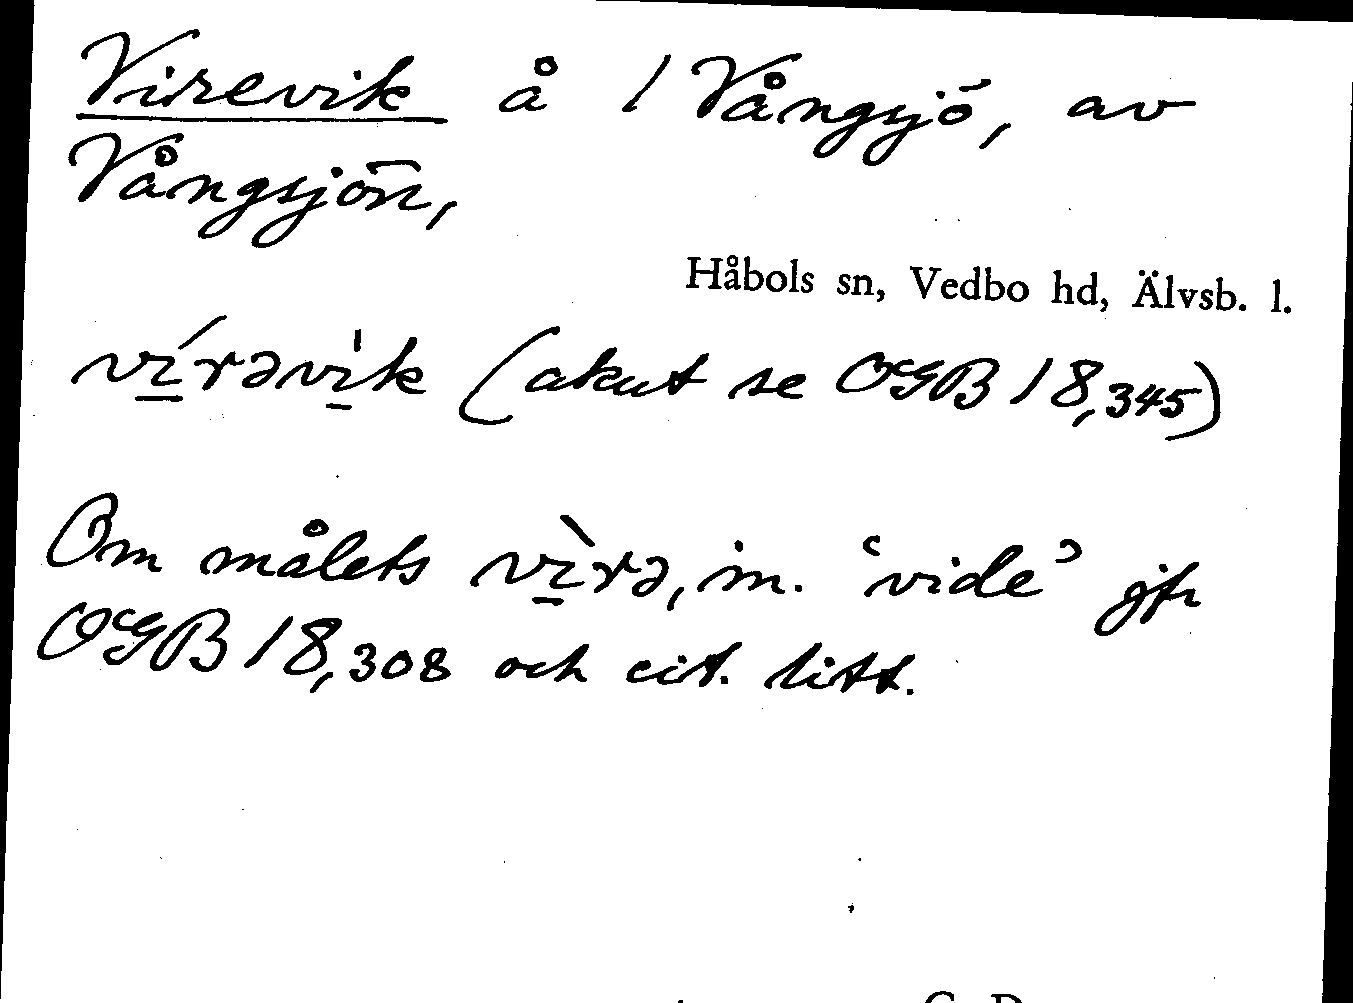 Virevik å 1 Vångsjö, av
Vångsjön,
Håbols sn, Vedbo hd, Älvsb. l.
vírəvi̍k (akut se OGB 18,345)
Om målets vìrə, m. ‘vide’ jfr
OGB 18,308 och cit. litt.